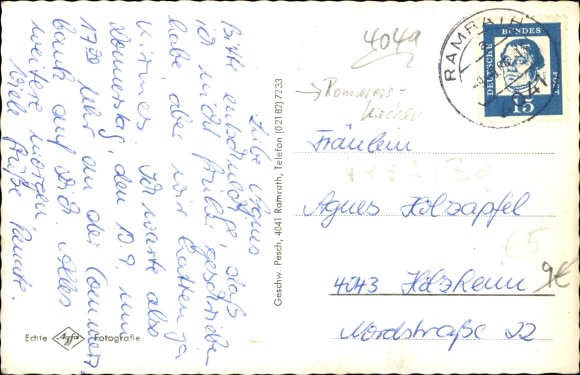 Liebe Agnes
Bitte entschuldige, daß
ich nicht früher geschrieben
habe, aber wir hatten ja
Kirmes. Ich warte also
Donnerstag, den 10.9. um
17.30 Uhr an der Commerz
bank auf Dich. Alles
weitere morgen.
Viele Grüße Renate.
Echte Agfa Fotografie
Geschw. Pesch, 4041 Ramrath, Telefon (02182) 7233
404a
Rommers-
kirchen
RAMRATH
4041
DEUTSCHE BUNDESPOST
15
Fräulein
Agnes Holzapfel
4043 Holzheim
Nordstraße 22
€5
9€